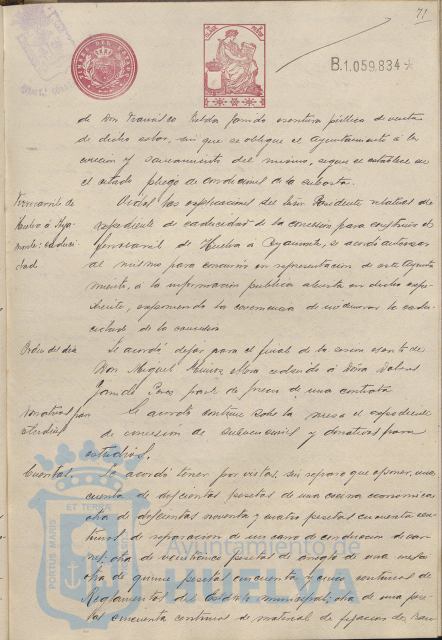 71
B.1.059.834
de Don Francisco escritura pública de venta
de dicho solar, sin que se obligue el Ayuntamiento á la
evicción y saneamiento del mismo, segun se establece en
el citado pliego de condiciones de la subasta.
Ferrocarril de
Huelva á Aya-
monte: caduci-
dad
Oidas las explicaciones del Señor Presidente relativas al
expediente de caducidad de la concesión para construir el
ferrocarril de Huelva á Ayamonte, se acordó autorizar
al mismo para concurrir en representación de este Ayunta
miento, á la información pública abierta en dicho expe-
diente, exponiendo la conveniencia de declarar la cadu-
cidad de la concesión
Orden del dia
Se acordó dejar para el final de la sesión escrito de
Don Miguel Mora cediendo á Doña Dolores
Perez parte de precio de una contrata
Donativos para
estudios
Se acordó continue sobre la mesa el expediente
de concesión de subvenciones y donativos para
estudios.
Cuentas
Se acordó tener por vistas, sin reparo que oponer, una
cuenta de doscientas pesetas de una cocina económica
otra de doscientas noventa y cuatro pesetas cincuenta cen-
timos de reparación de un carro de conducción de car-
nes; otra de veinticinco pesetas de arreglo de una mesa
otra de quince pesetas cincuenta y cinco centimos de
Reglamentos del Estatuto municipal; otra de una pese-
tas cincuenta centimos de material de fijación de ban
PORTUS MARIS ET TERRÆ
Ayuntamiento de
HUELVA